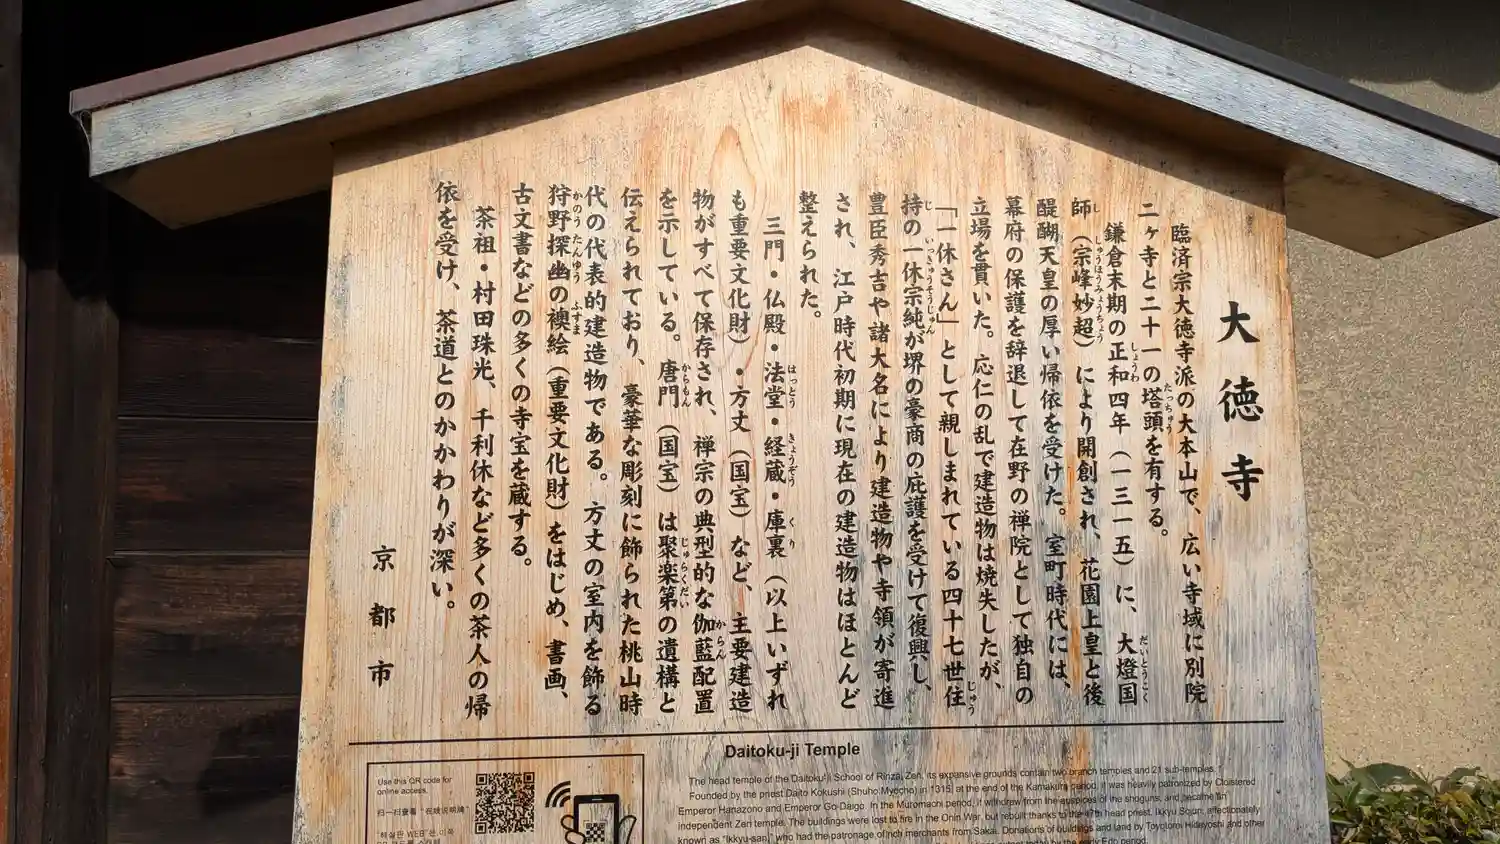 大徳寺
臨済宗大徳寺派の大本山で、広い寺域に別院
二ヶ寺と二十一の塔頭を有する。
鎌倉末期の正和四年（一三一五）に、大燈国
師（宗峰妙超）により開創され、花園上皇と後
醍醐天皇の厚い帰依を受けた。室町時代には、
幕府の保護を辞退して在野の禅院として独自の
立場を貫いた。応仁の乱で建造物は焼失したが、
「一休さん」として親しまれている四十七世住
持の一休宗純が堺の豪商の庇護を受けて復興し、
豊臣秀吉や諸大名により建造物や寺領が寄進
され、江戸時代初期に現在の建造物はほとんど
整えられた。
三門・仏殿・法堂・経蔵・庫裏（以上いずれ
も重要文化財）・方丈（国宝）など、主要建造
物がすべて保存され、禅宗の典型的な伽藍配置
を示している。唐門（国宝）は聚楽第の遺構と
伝えられており、豪華な彫刻に飾られた桃山時
代の代表的建造物である。方丈の室内を飾る
狩野探幽の襖絵（重要文化財）をはじめ、書画、
古文書などの多くの寺宝を蔵する。
茶祖・村田珠光、千利休など多くの茶人の帰
依を受け、茶道とのかかわりが深い。
京都市
Daitoku-ji Temple
The head temple of the Daitoku-ji School of Rinzai Zen, its expansive grounds contain two branch temples and 21 sub-temples.
Founded by the priest Daito Kokushi (Shuho Myocho) in 1315, at the end of the Kamakura period, it was heavily patronized by Cloistered
Emperor Hanazono and Emperor Go-Daigo. In the Muromachi period, it withdrew from the auspices of the shoguns, and became an
independent Zen temple. The buildings were lost to fire in the Onin War, but rebuilt thanks to the 47th head priest, Ikkyu Sojun, affectionately
known as "Ikkyu-san," who had the patronage of rich merchants from Sakai. Donations of buildings and land by Toyotomi Hideyoshi and other
by the early Edo period.
Use this QR code for
online access.